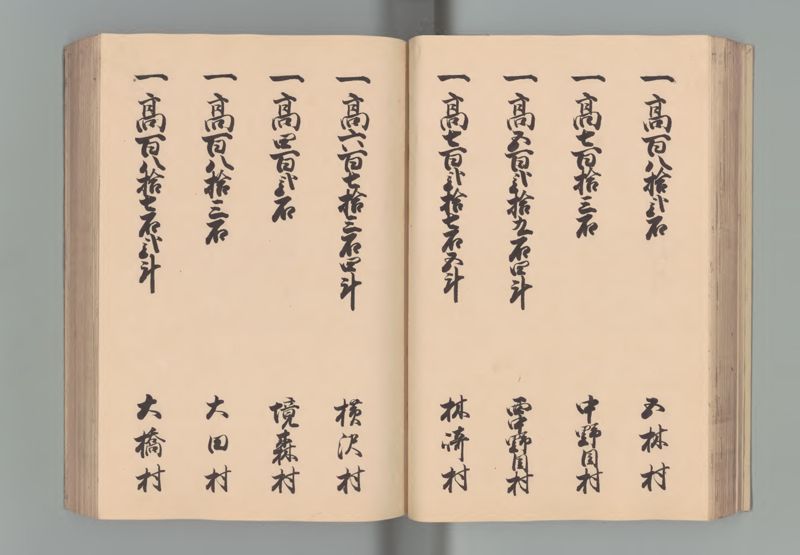 一高百八拾弐石 五林村
一高七百拾三石 中野目村
一高五百弐拾九石四斗 西中野目村
一高七百弐拾七石五斗 林崎村
一高六百七拾三石四斗 横沢村
一高四百弐石 境森村
一高百八拾三石 大田村
一高百八拾七石弐斗 大橋村